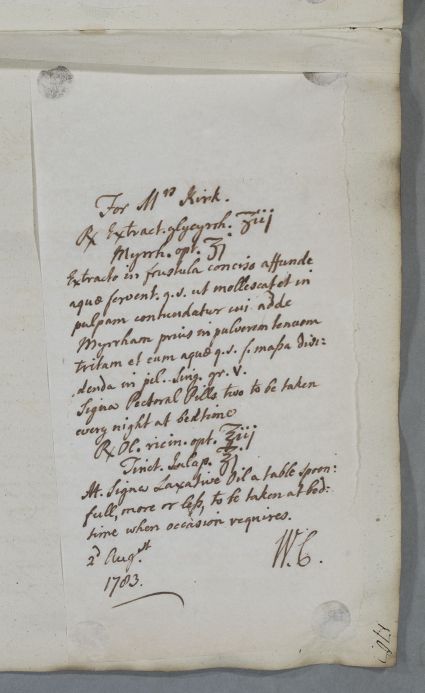 For Mrs Kirk.
℞ Extract. glycyrrh. ʒiij
Myrrh. opt. ʒj
Extracto in frustula conciso affunde
aquæ fervent. q.s. ut mollescat et in
pulpam contundatur cui adde
Myrrham prius in pulverem tenuem
tritam et cum aquæ q.s. f. maſsa divi:
:denda in pil. sing. gr. v.
Signa Pectoral Pills two to be taken
every night at bedtime
℞ Ol. ricin. opt. ℥iij
Tinct. Jalap. ℥j.
M. Signa Laxative Oil a table spoon:
full, more or leſs, to be taken at bed:
time when occasion requires.
2d Augst
1783.
W.C.